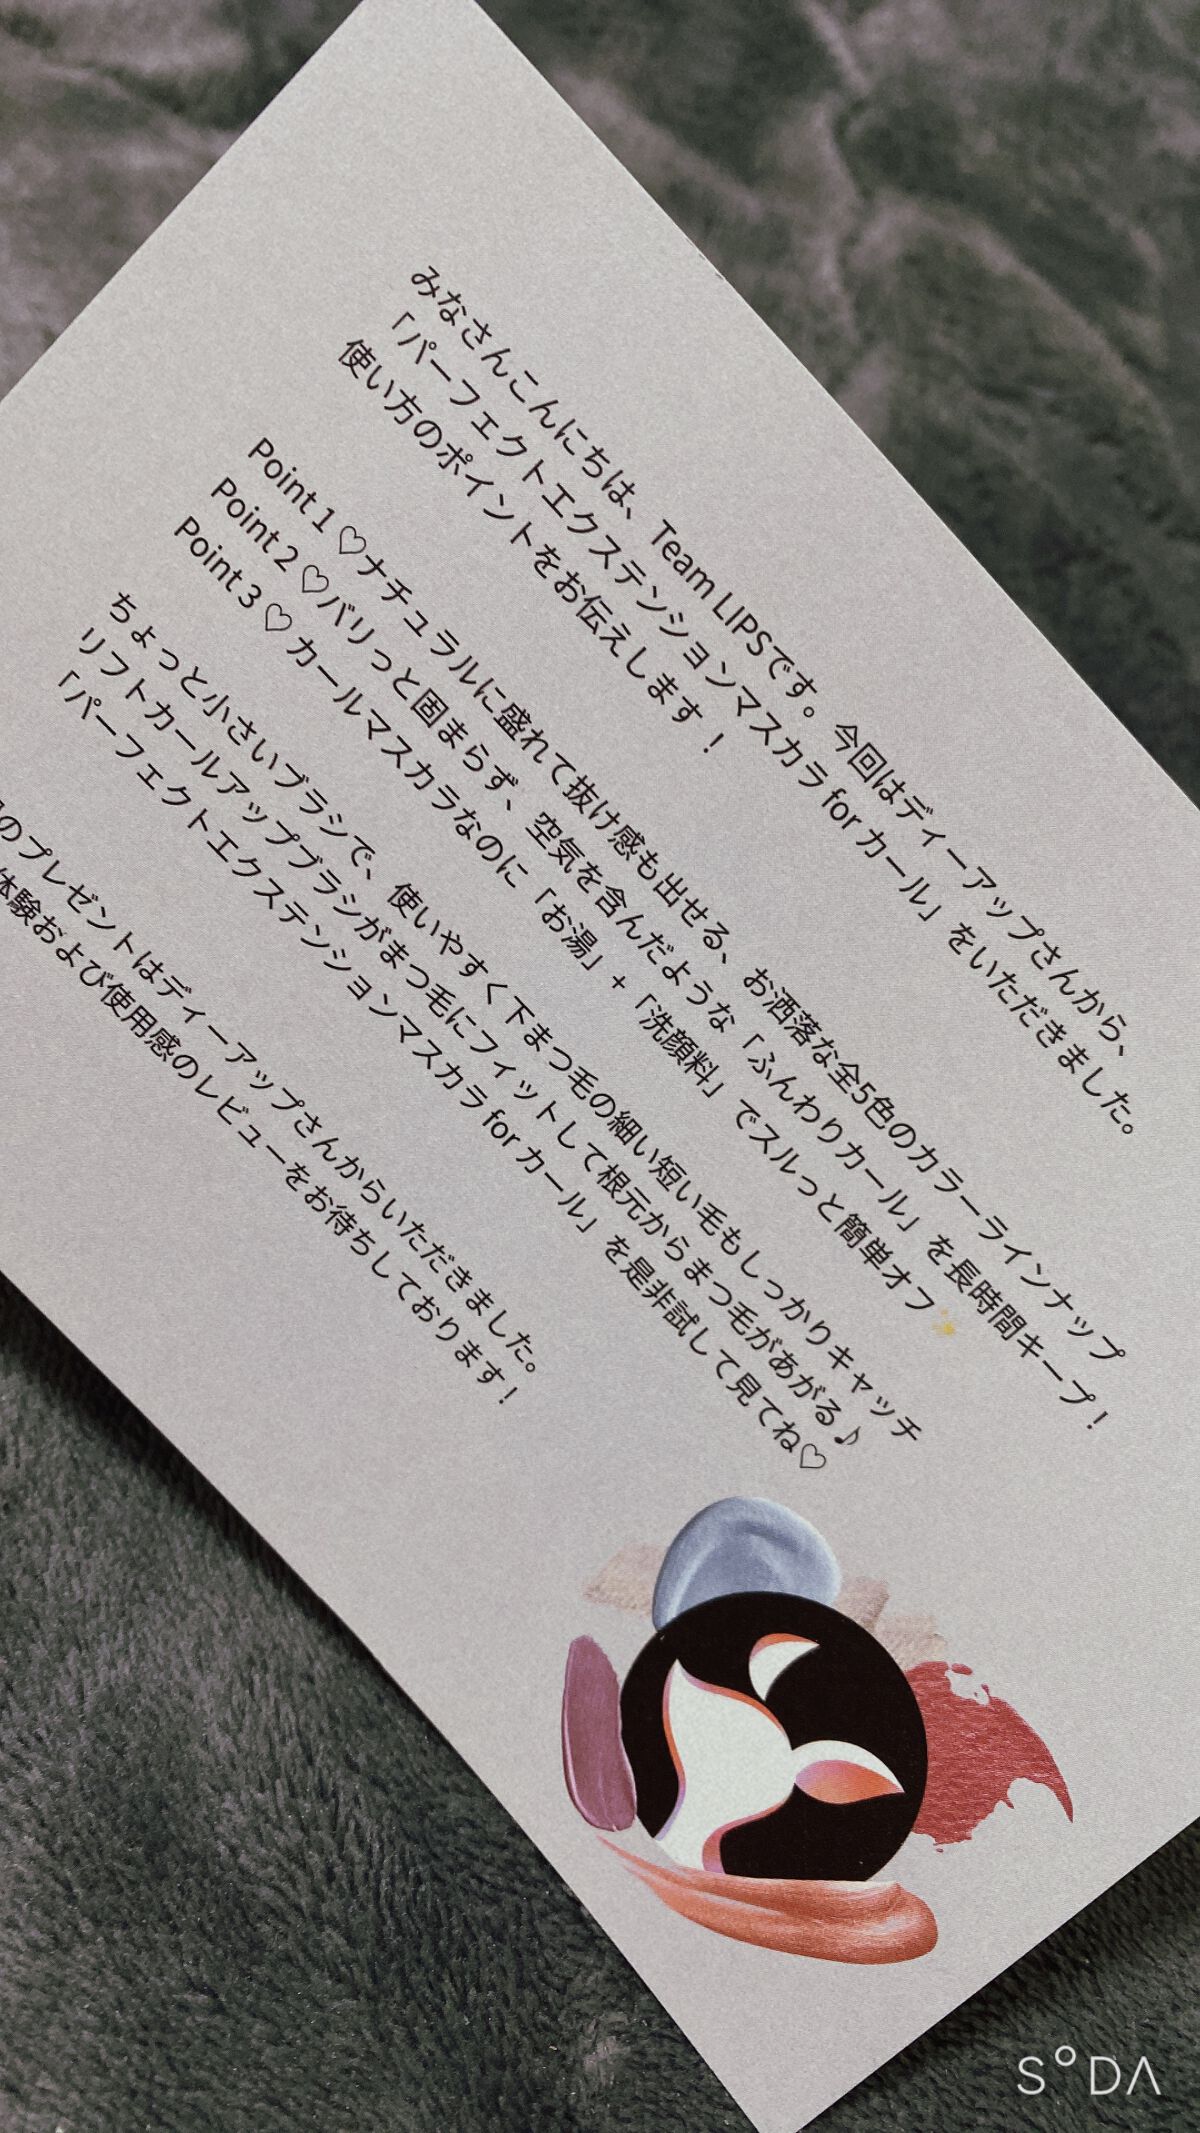 みなさんこんにちは、Team LIPSです。今回はディーアップさんから、
「パーフェクトエクステンションマスカラ for カール」をいただきました。
使い方のポイントをお伝えします！
Point 1 ♡ナチュラルに盛れて抜け感も出せる、お洒落な全5色のカラーラインナップ
Point 2 ♡バリっと固まらず、空気を含んだような「ふんわりカール」を長時間キープ！
Point 3 ♡ カールマスカラなのに「お湯」+「洗顔料」でスルっと簡単オフ✨
ちょっと小さいブラシで、使いやすく下まつ毛の細い短い毛もしっかりキャッチ
リフトカールアップブラシがまつ毛にフィットして根元からまつ毛があがる♪
「パーフェクトエクステンションマスカラ for カール」を是非試して見てね♡
のプレゼントはディーアップさんからいただきました。
体験および使用感のレビューをお待ちしております！
SODA